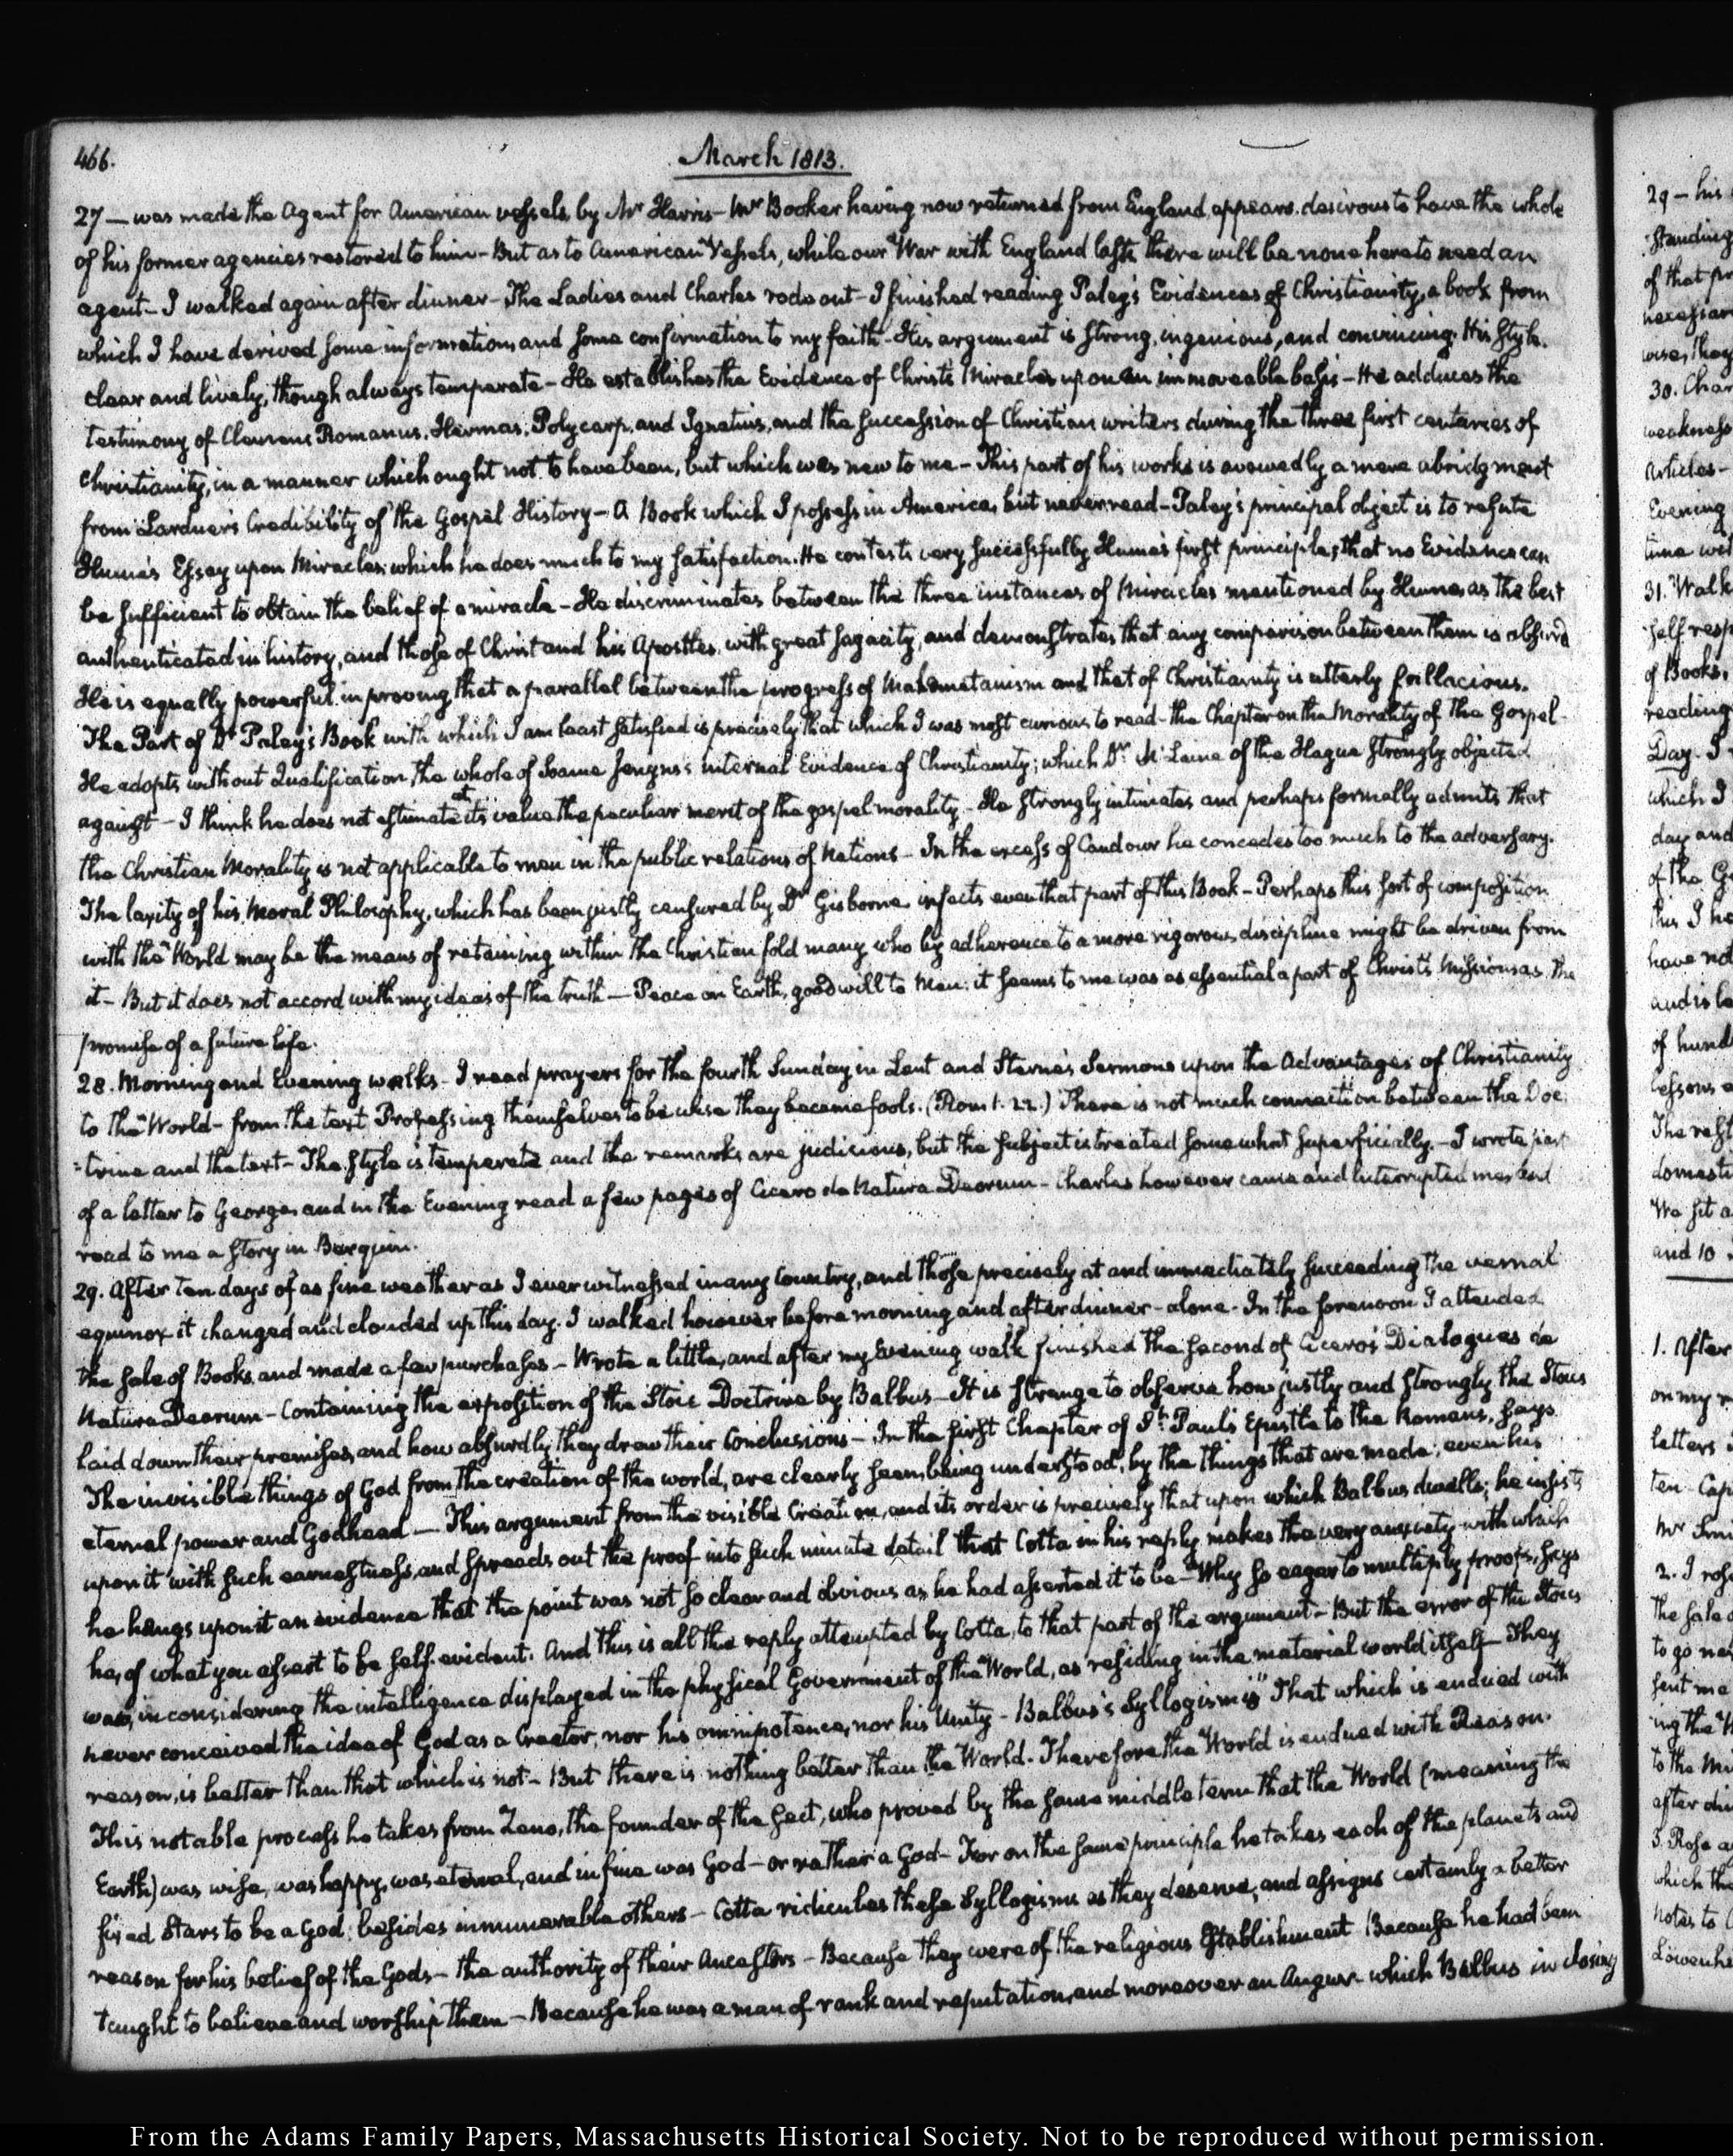 466.
March 1813.
27 — was made the Agent for American vessels, by Mr Harris — Mr Booker having now returned from England, appears desirous to have the whole
of his former agencies restored to him — But as to American Vessels, while our War with England lasts there will be none here to need an
agent — I walked again after dinner — The Ladies and Charles rode out — I finished reading Paley's Evidences of Christianity, a book from
which I have derived some information, and some confirmation to my faith — His argument is strong, ingenious, and convincing. His style
clear and lively, though always temperate — He establishes the Evidence of Christ's Miracles upon an immoveable basis — He adduces the
testimony of Clemens Romanus, Hermas, Polycarp, and Ignatius, and the succession of Christian writers during the three first centuries of
Christianity, in a manner which ought not to have been, but which was new to me — This part of his works is avowedly a mere abridgment
from Lardner's Credibility of the Gospel History — A Book which I possess in America, but never read — Paley's principal object is to refute
Hume's Essay upon Miracles; which he does much to my satisfaction. He contests very successfully Hume's first principle, that no Evidence can
be sufficient to obtain the belief of a miracle — He discriminates between the three instances of Miracles mentioned by Hume, as the best
authenticated in history, and those of Christ and his Apostles, with great sagacity, and demonstrates that any comparison between them is absurd
He is equally powerful in proving that a parallel between the progress of Mahometanism and that of Christianity is utterly fallacious.
The Part of Dr Paley's Book with which I am least satisfied is precisely that which I was most curious to read — the Chapter on the Morality of the Gospel —
He adopts without Qualification, the whole of Soame Jenyns's internal Evidence of Christianity; which Dr McLaine of the Hague strongly objected
against — I think he does not estimate at its value the peculiar merit of the gospel morality — He strongly intimates and perhaps formally admits that
the Christian Morality is not applicable to men in the public relations of Nations — In the excess of Candour he concedes too much to the adversary.
The laxity of his Moral Philosophy, which has been justly censured by Dr Gisborne infects even that part of this Book — Perhaps this sort of composition
with the World may be the means of retaining within the Christian fold many who by adherence to a more rigorous discipline might be driven from
it — But it does not accord with my ideas of the truth — Peace on Earth, good will to Men: it seems to me was as essential a part of Christ's Mission as the
promise of a future life.
28. Morning and Evening walks — I read prayers for the fourth Sunday in Lent and Sterne's Sermons upon the Advantages of Christianity
to the World — from the text Professing themselves to be wise they became fools. (Rom 1. 22.) There is not much connection between the Doc
=trine and the text — The style is temperate and the remarks are judicious, but the subject is treated somewhat superficially. — I wrote part
of a letter to George, and in the Evening read a few pages of Cicero de Natura Deorum — Charles however came and interrupted me and
read to me a story in Berquin.
29. After ten days of as fine weather as I ever witnessed in any Country, and those precisely at and immediately succeeding the vernal
equinox it changed and clouded up this day. I walked however before morning and after dinner — alone — In the forenoon I attended
the sale of Books, and made a few purchases — Wrote a little, and after my Evening walk finished the second of Cicero's Dialogues de
Natura Deorum — Containing the exposition of the Stoic Doctrine by Balbus — It is strange to observe how justly and strongly the Stoics
laid down their premises, and how absurdly they drew their Conclusions — In the first Chapter of St. Paul's Epistle to the Romans, says
The invisible things of God from the creation of the world, are clearly seen, being understood, by the things that are made; even his
eternal power and Godhead — This argument from the visible Creation, and its order is precisely that upon which Balbus dwells; he insists
upon it with such earnestness, and spreads out the proof into such minute detail that Cotta in his reply makes the very anxiety with which
he hangs upon it an evidence that the point was not so clear and obvious as he had asserted it to be — Why so eager to multiply proofs, says
he, of what you assert to be self-evident. And this is all the reply attempted by Cotta, to that part of the argument — But the error of the Stoics
was, in considering the intelligence displayed in the physical Government of the World, as residing in the material world itself — They
never conceived the idea of God as a Creator, nor his omnipotence, nor his Unity — Balbus's Syllogism is "That which is endued with
reason, is better than that which is not — But there is nothing better than the World. Therefore the World is endued with Reason.
This notable process he takes from Zeno, the founder of the Sect, who proved by the same middle term that the World (meaning the
Earth) was wise, was happy, was eternal, and in fine was God — or rather a God — For on the same principle he takes each of the planets and
fixed Stars to be a God; besides innumerable others — Cotta ridicules these Syllogisms as they deserve, and assigns certainly a better
reason for his belief of the Gods — the authority of their Ancestors — Because they were of the religious Establishment Because he had been
taught to believe and worship them — Because he was a man of rank and reputation, and moreover an Augur — which Balbus in closing
29 — his
standing
of that
30.
weakness
Articles —
Evening
31. Walk
of Books.
reading
Day. I
which I
day and
of the
have not
of hund
lessons
The rest
We sit a
and 10
1. After
on my
letters
ten
2. I rose
to go
sent me
to the
after
3. Rose
which the
notes to
From the Adams Family Papers, Massachusetts Historical Society. Not to be reproduced without permission.